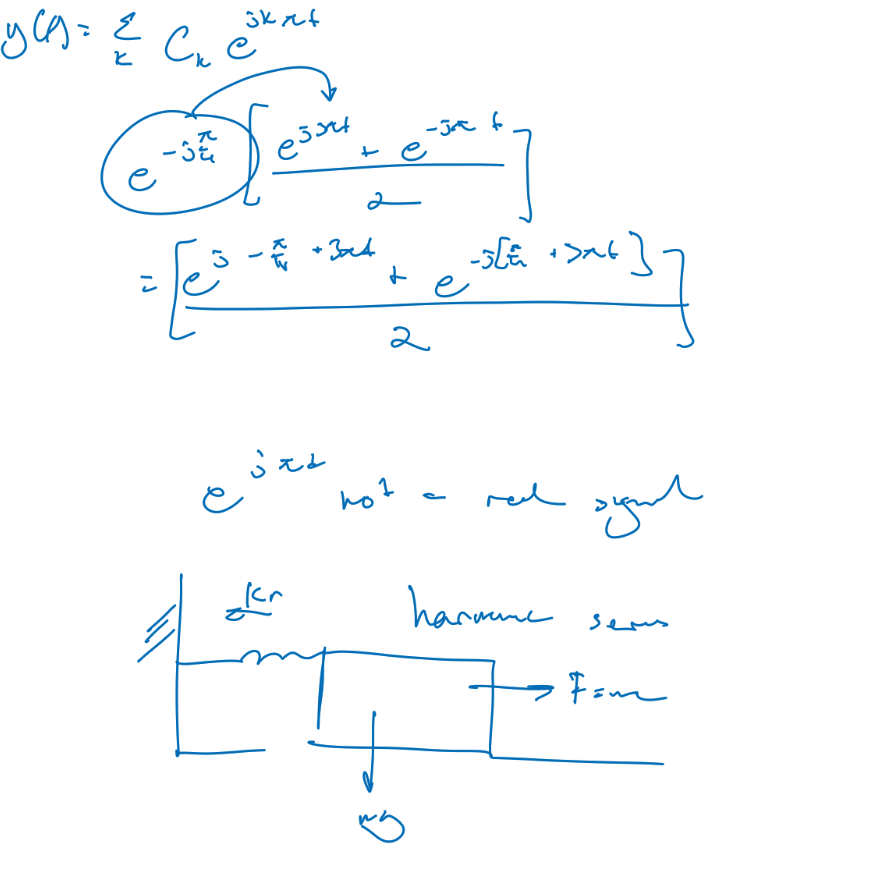 y(t) = Σ_k C_k e^{jkπt}
e^{-j π/4} [ (e^{j3πt} + e^{-j3πt}) / 2 ]
= [ (e^{j -π/4 + 3πt} + e^{-j[π/4 + 3πt]}) / 2 ]
e^{jπt} not a real signal
kr harmonic series
F = m
mg